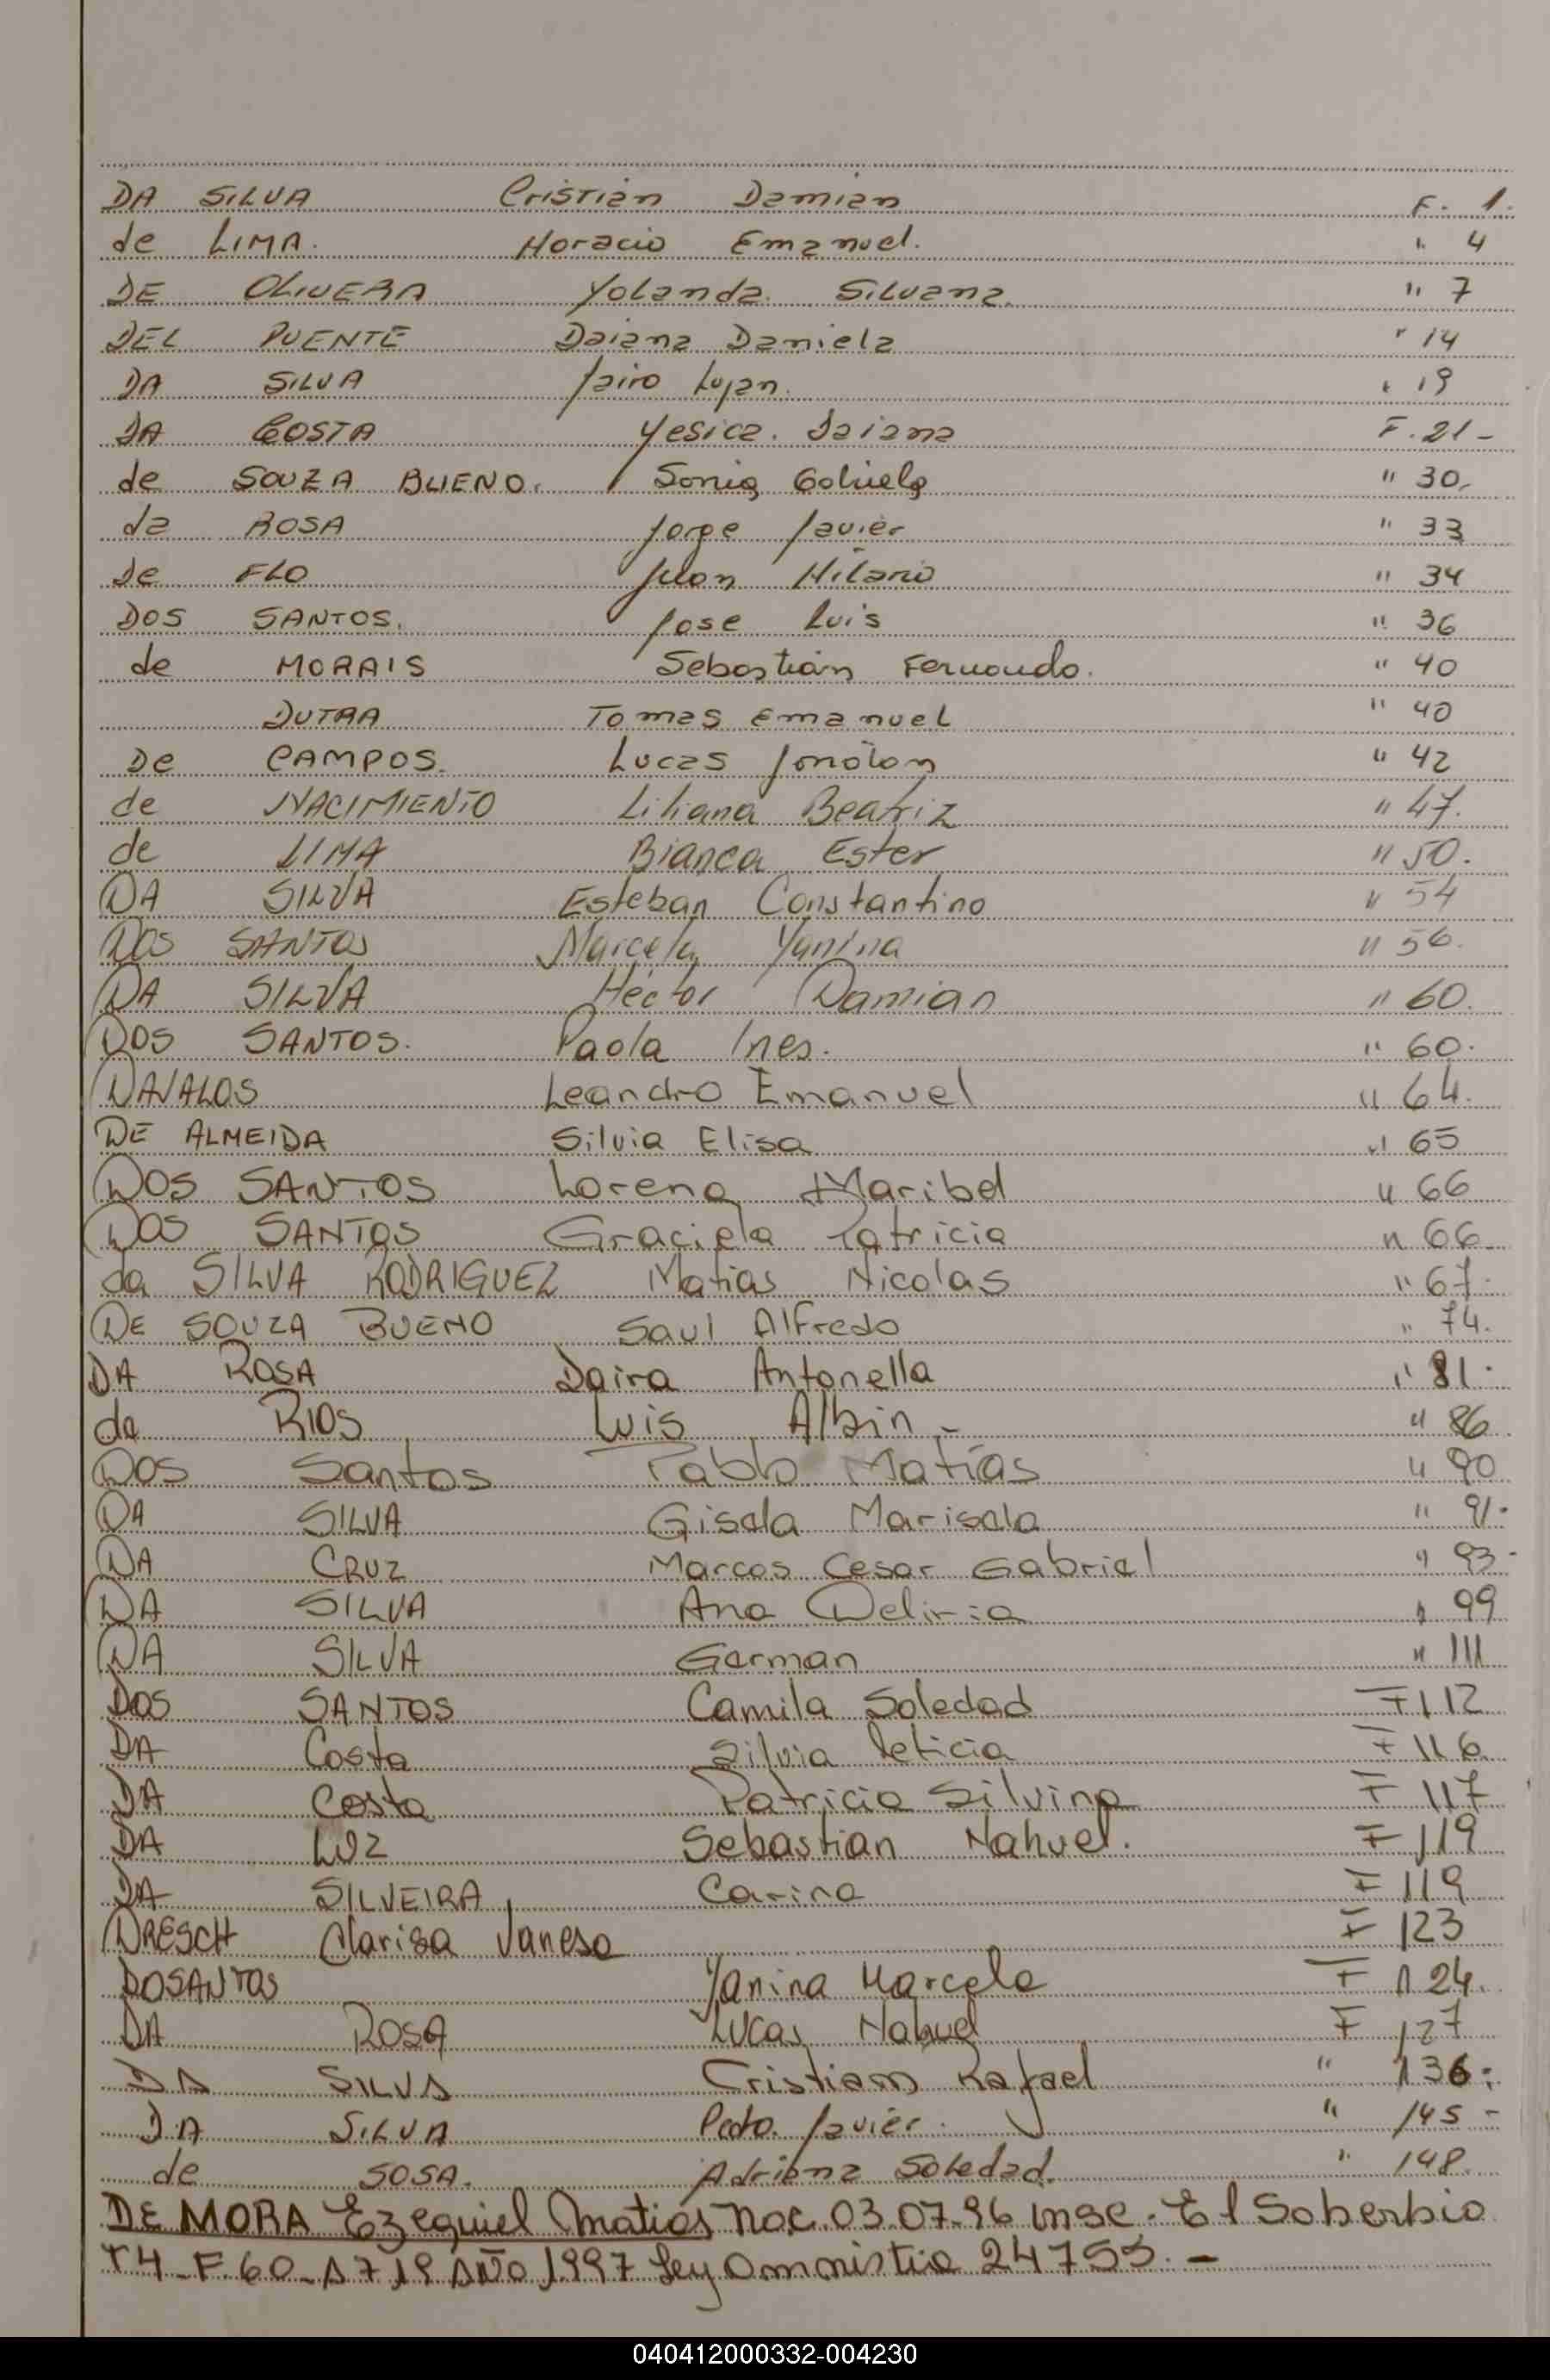 DA SILVA Cristian Damian F. 1.
de LIMA. Horacio Emanuel. " 4
DE OLIVERA Yolanda Silvana. " 7
DEL PUENTE Daiana Daniela " 14
DA SILVA Jairo Lujan. " 19
DA COSTA Yesica. Daiana F. 21-
de SOUZA BUENO. Sonia Gabriela " 30.
da ROSA Jorge Javier " 33
De FLO Juan Hilario " 34
DOS SANTOS. Jose Luis " 36
de MORAIS Sebastián Fernando. " 40
DUTRA Tomas Emanuel " 40
De CAMPOS. Lucas Jonatan " 42
de NACIMIENTO Liliana Beatriz " 47.
de LIMA Bianca Ester " 50.
DA SILVA Esteban Constantino " 54
DOS SANTOS Marcela Yanina " 56.
DA SILVA Héctor Damian " 60.
DOS SANTOS. Paola Ines. " 60.
DAVALOS Leandro Emanuel " 64.
DE ALMEIDA Silvia Elisa " 65
DOS SANTOS Lorena Maribel " 66
DOS SANTOS Graciela Patricia " 66
da SILVA RODRIGUEZ Matias Nicolas " 67.
DE SOUZA BUENO Saul Alfredo " 74.
DA ROSA Daira Antonella " 81.
de RIOS Luis Albin - " 86
DOS Santos Pablo Matías " 90
DA SILVA Gisela Marisela " 91.
DA CRUZ Marcos Cesar Gabriel " 93-
DA SILVA Ana Deliria " 99
DA SILVA German " 111
DOS SANTOS Camila Soledad F 112
DA Costa Silvia Leticia F 116
DA Costa Patricia Silvina F 117
DA LUZ Sebastian Nahuel. F 119
DA SILVEIRA Carina F 119
DRESCH Clarisa Vanesa F 123
DOSANTOS Yanina Marcela F 124.
DA ROSA Lucas Nahuel F 127
DA SILVA Cristiam Rafael " 136.
DA SILVA Pedro. Javier. " 145 -
de SOSA. Adriana Soledad. " 148.
DE MORA Ezequiel Matias Nac. 03.07.96 insc. El Soberbio
T4-F.60-A719 AÑO 1997 Ley Amnistia 24755.-
040412000332-004230